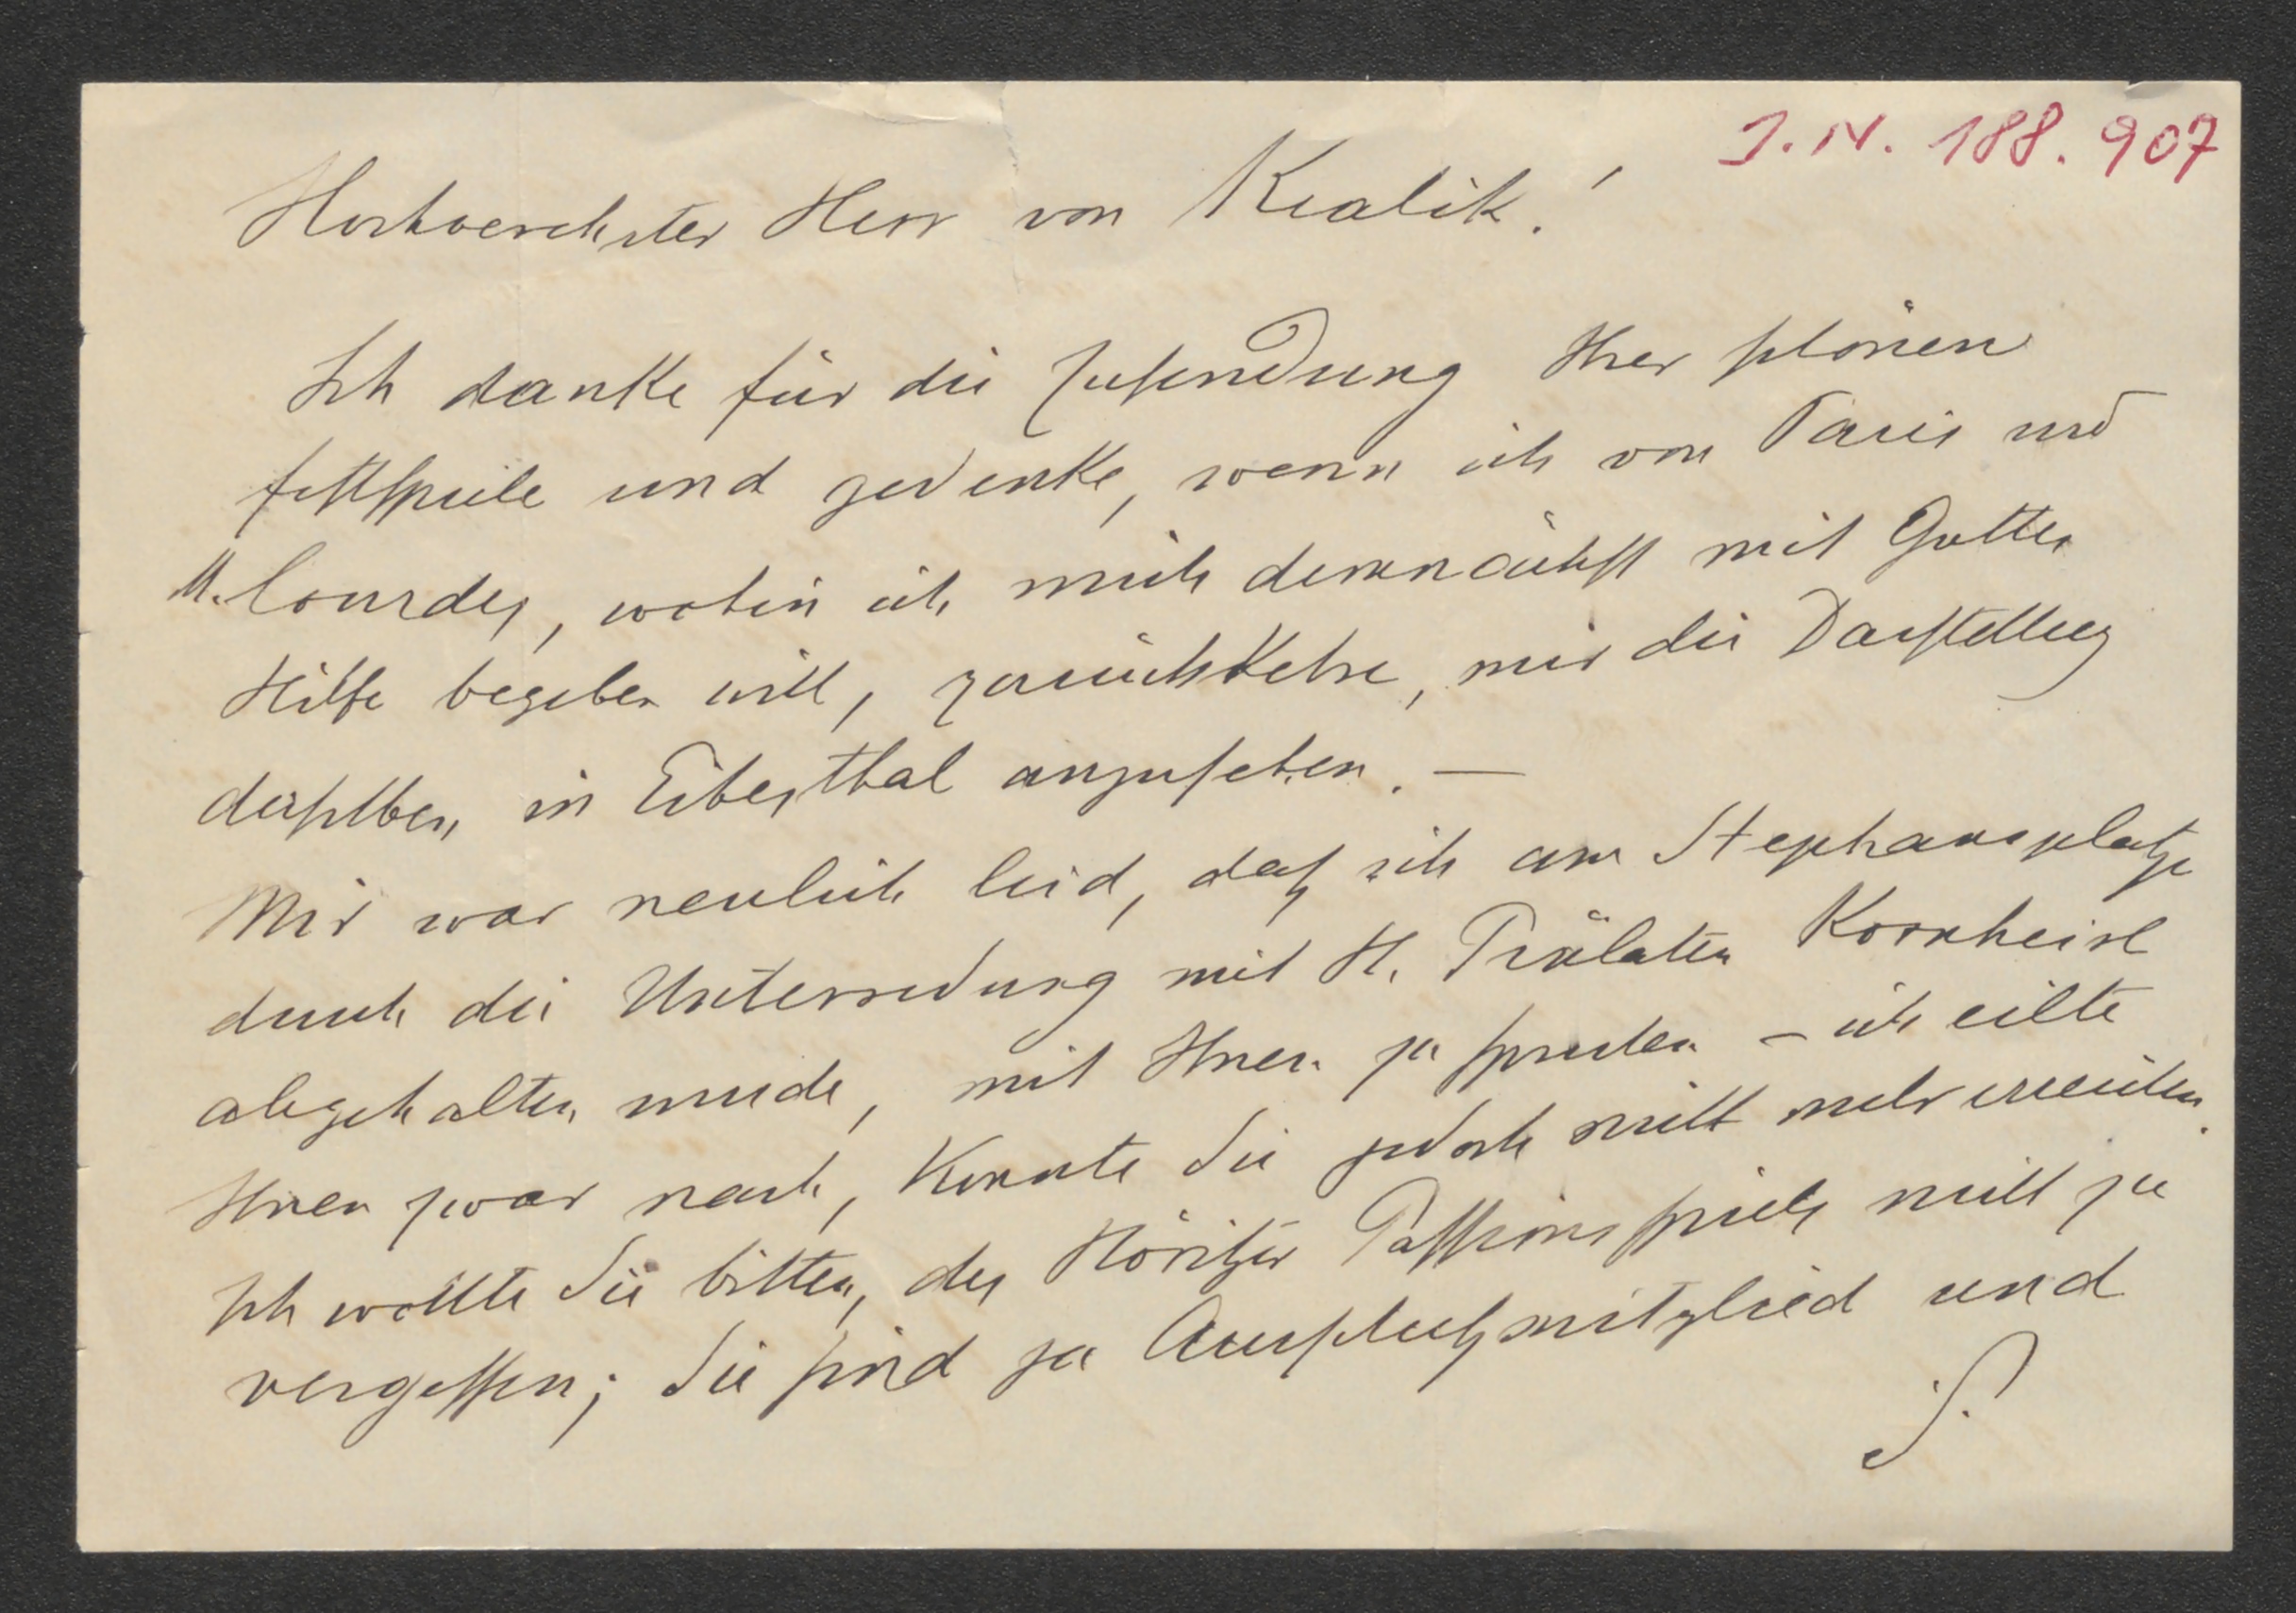 J.N. 188.907
Hochverehrter Herr von Kralik!
Ich danke für die Zusendung Ihrer schönen
Festspiele und gedenke, wenn ich von Paris und
M. Lourdes, wohin ich mich demnächst mit Gottes
Hilfe begeben will, zurückkehre, mir die Darstellung
derselben in Eibesthal anzusehen. —
Mir war neulich leid, daß ich am Stephansplatze
durch die Unterredung mit H. Prälaten Kornheisl
abgehalten wurde, mit Ihnen zu sprechen – ich eilte
Ihnen zwar nach, konnte Sie jedoch nicht mehr erreichen.
Ich wollte Sie bitten, des Höritzer Passionsspiels nicht zu
vergessen; Sie sind ja Ausschußmitglied und